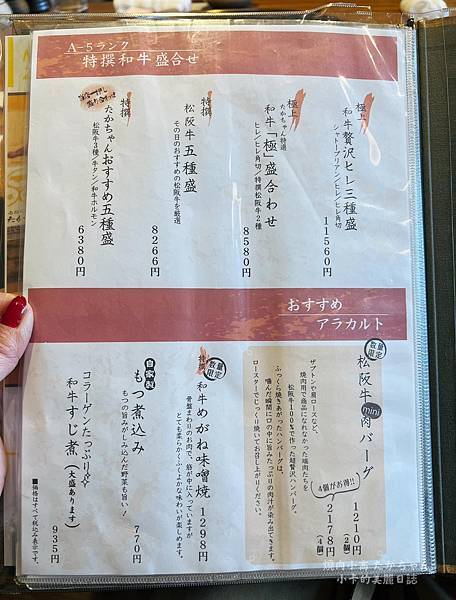 A-5ランク
特撰和牛盛合せ
極上
和牛贅沢ヒレ三種盛
シャトーブリアン/ヒレ/ヒレ角切
11560円
極上
たかちゃん特選
和牛「極」盛合わせ
ヒレ/ヒレ角切/特撰松阪牛2種
8580円
特撰
松阪牛五種盛
その日のおすすめの松阪牛を厳選
8266円
特撰
たかちゃんおすすめ五種盛
松阪牛3種/牛タン/和牛ホルモン
6380円
おすすめ
アラカルト
数量限定
松阪牛mini肉バーグ
ザブトンや肩ロースなど、
焼肉用で商品になれなかった端肉たちを
松阪牛100%で作った超贅沢ハンバーグ。
ふっくら焼きあがったハンバーグは、
噛んだ瞬間に口の中に旨みたっぷりの肉汁が染み出てきます。
ロースターでじっくり焼いてお召し上がりください。
1210円(2個)
4個がお得!!
2178円(4個)
数量限定
特撰
和牛めがね味噌焼
1298円
骨盤まわりのお肉で、筋が中に入っていますが
とても柔らかくふくよかな味わいが楽しめます。
自家製
もつ煮込み
もつの旨みがしみ込んだ野菜も旨い!
770円
コラーゲンたっぷり
和牛すじ煮(大盛あります)
935円
■価格はすべて税込み表示です。
焼肉小噺たかちゃん
小卡的美麗日誌